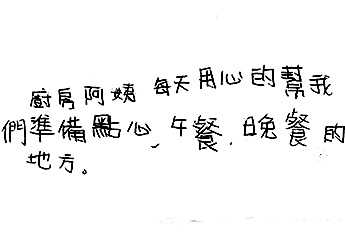 廚房阿姨每天用心的幫我
們準備點心、午餐、晚餐的
地方。